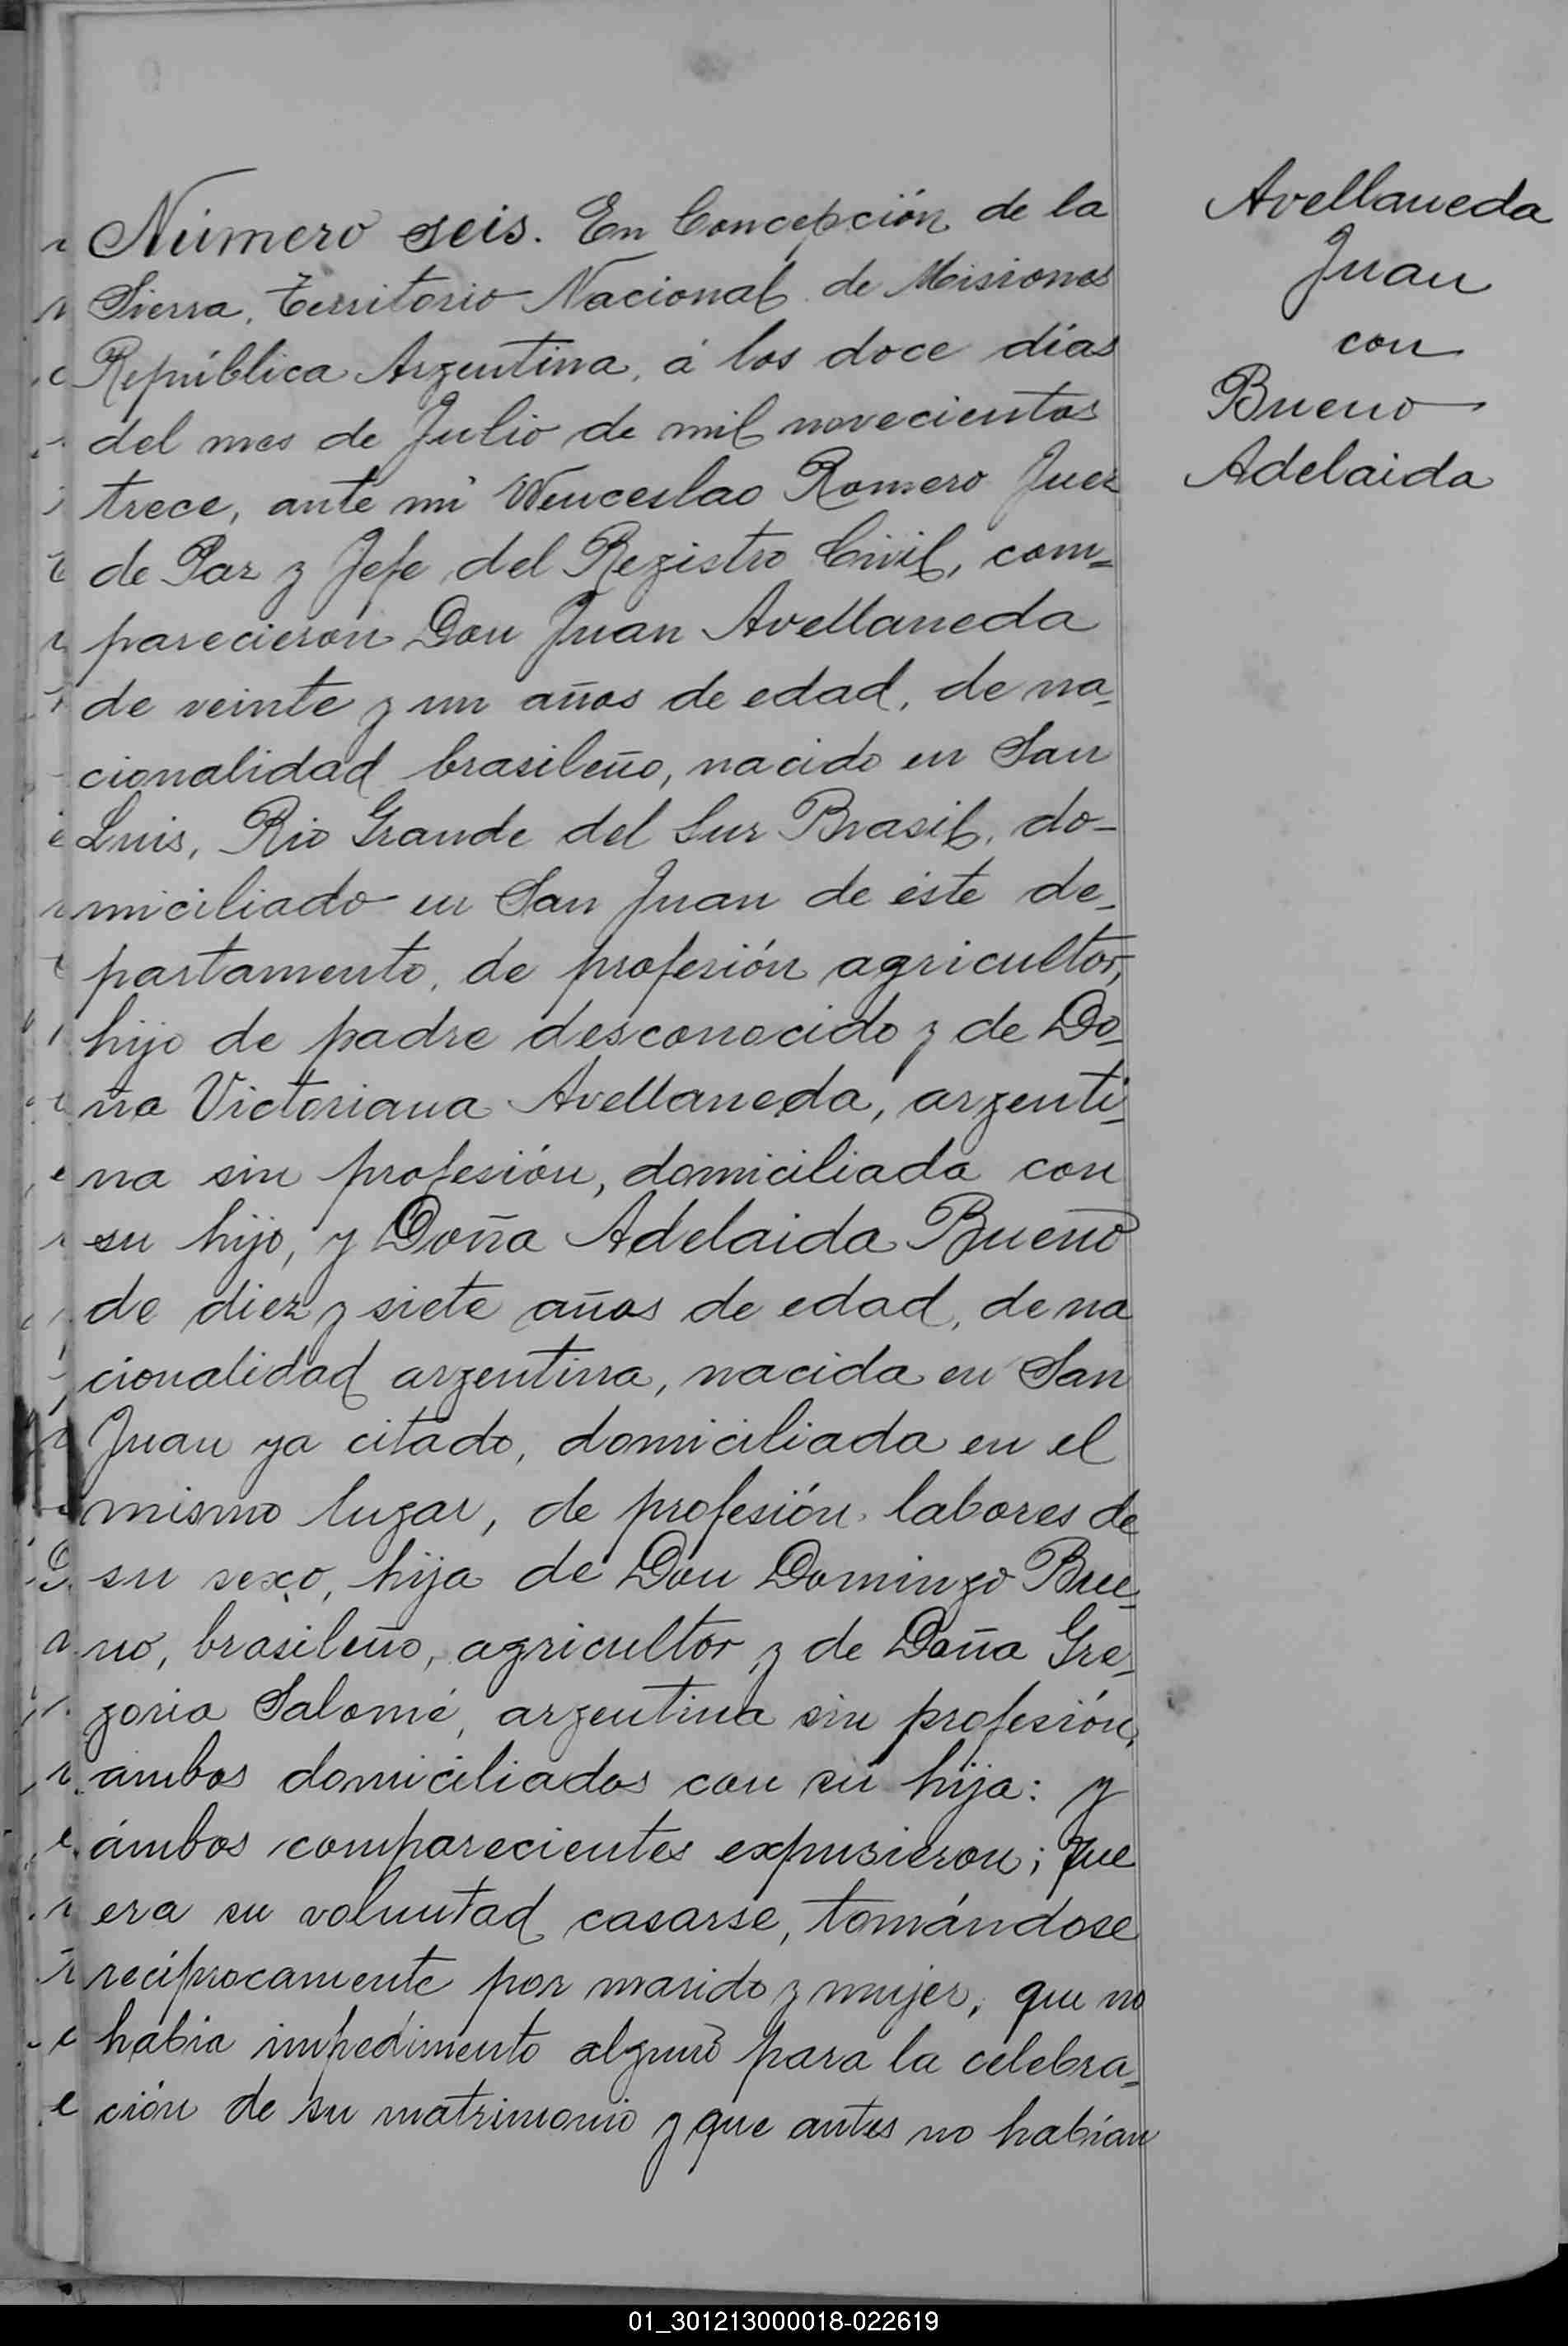 Número seis. En Concepción de la
Sierra, Territorio Nacional de Misiones
República Argentina, á los doce días
del mes de Julio de mil novecientos
trece, ante mi Wenceslao Romero Juez
de Paz y Jefe del Registro Civil, com=
parecieron Don Juan Avellaneda
de veinte y un años de edad, de na-
cionalidad brasileño, nacido en San
Luis, Rio Grande del Sur Brasil, do-
miciliado en San Juan de éste de-
partamento, de profesión agricultor,
hijo de padre desconocido y de Do-
ña Victoriana Avellaneda, argenti-
na sin profesión, domiciliada con
su hijo, y Doña Adelaida Bueno
de diez y siete años de edad, de na
cionalidad argentina, nacida en San
Juan ya citado, domiciliada en el
mismo lugar, de profesión labores de
su sexo, hija de Don Domingo Bue-
no, brasileño, agricultor y de Doña Gre-
goria Salomé, argentina sin profesión,
ambos domiciliados con su hija: y
ámbos comparecientes expusieron; que
era su voluntad casarse, tomándose
recíprocamente por marido y mujer, que no
había impedimento alguno para la celebra-
ción de su matrimonio y que antes no habían
Avellaneda
Juan
con
Bueno
Adelaida
01_301213000018-022619